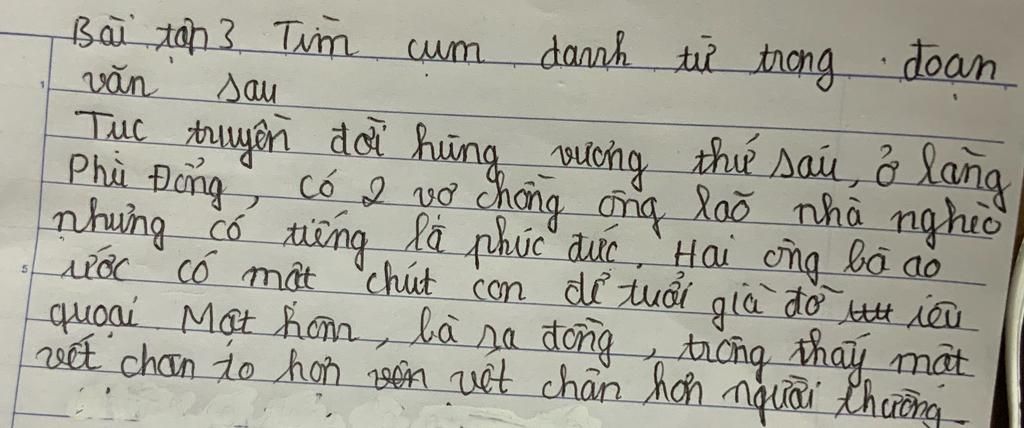 Bài tập 3 Tìm cụm danh từ trong đoạn
văn sau
Tục truyền đời hùng vương thứ sáu, ở làng
Phù Đổng, có 2 vợ chồng ông lão nhà nghèo
nhưng có tiếng là phúc đức. Hai ông bà ao
ước có một chút con để tuổi già đỡ iêu
quoại Một hôm, bà ra đồng, trông thấy một
vết chân to hơn vết chân hơn người thường